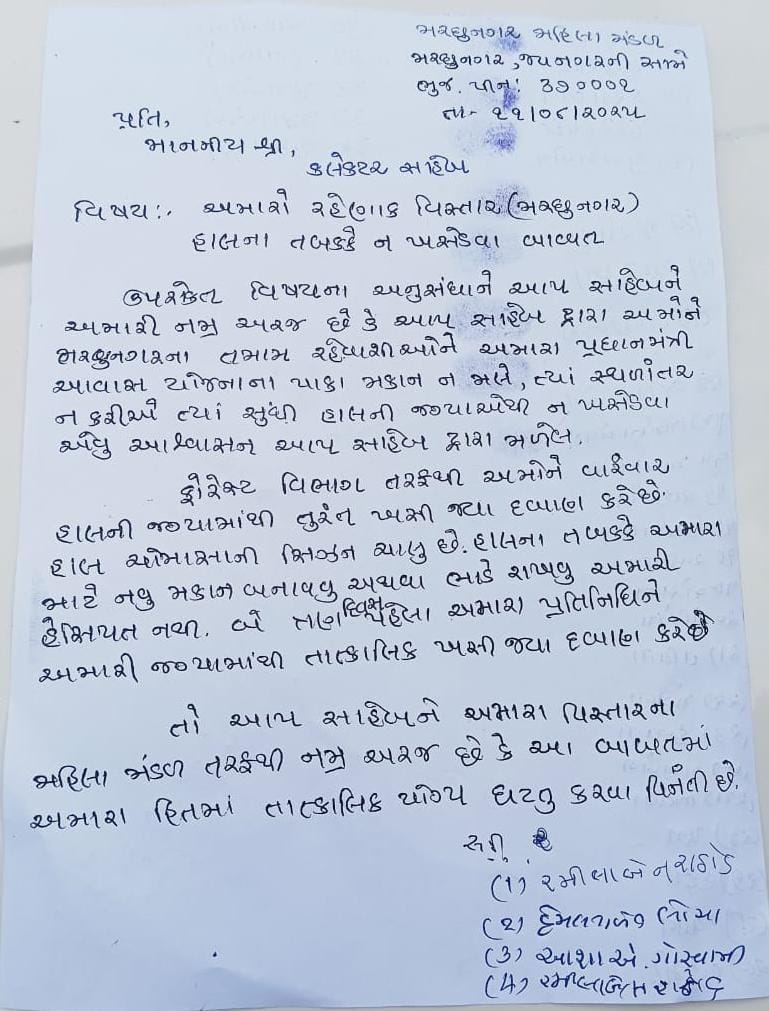 મરઘુનગર મહિલા મંડળ
મરઘુનગર, જયનગરની સામે
ભુજ. પીન: ૩૭૦૦૦૧
તા- ૨૧/૦૮/૨૦૨૫
પ્રતિ,
માનનીય શ્રી,
કલેકટર સાહેબ
વિષય:. અમારો રહેણાક વિસ્તાર (મરઘુનગર)
હાલના તબક્કે ન ખસેડવા બાબત
ઉપરોકત વિષયના અનુસંધાને આપ સાહેબને
અમારી નમ્ર અરજ છે કે આપ સાહેબ દ્વારા અમોને
મરઘુનગરના તમામ રહેવાશીઓને અમારા પ્રધાનમંત્રી
આવાસ યોજનાના પાકા મકાન ન મલે, ત્યાં સ્થળાંતર
ન કરીએ ત્યાં સુધી હાલની જગ્યાએથી ન ખસેડવા
એવુ આશ્વાસન આપ સાહેબ દ્વારા મળેલ.
ફોરેસ્ટ વિભાગ તરફથી અમોને વારંવાર
હાલની જગ્યામાંથી તુરંત ખસી જવા દબાણ કરેછે
હાલ ચોમાસાની સિઝન ચાલુ છે. હાલના તબક્કે અમારા
માટે નવુ મકાન બનાવવુ અથવા ભાડે રાખવુ અમારી
હેસિયત નથી. બે ત્રણ દિવસ પહેલા અમારા પ્રતિનિધિને
અમારી જગ્યામાંથી તાત્કાલિક ખસી જવા દબાણ કરેછે
તો આપ સાહેબને અમારા વિસ્તારના
મહિલા મંડળ તરફથી નમ્ર અરજ છે કે આ બાબતમાં
અમારા હિતમાં તાત્કાલિક યોગ્ય ઘટતુ કરવા વિનંતી છે.
(1) રમીલાબેન રાઠોડ
(૨)
(3) આશા એ. ગોસ્વામી
(૪) રમીલાબેન